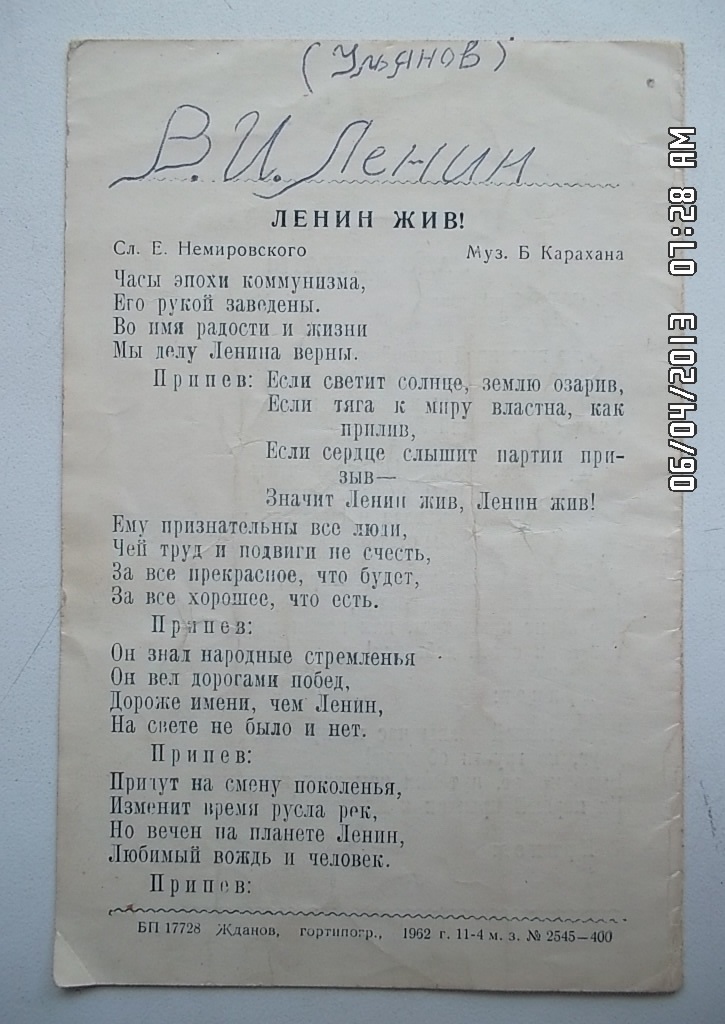 (Ульянов)
В. И. Ленин
ЛЕНИН ЖИВ!
Сл. Е. Немировского Муз. Б Карахана
Часы эпохи коммунизма,
Его рукой заведены.
Во имя радости и жизни
Мы делу Ленина верны.
Припев: Если светит солнце, землю озарив,
Если тяга к миру властна, как
прилив,
Если сердце слышит партии при-
зыв—
Значит Ленин жив, Ленин жив!
Ему признательны все люди,
Чей труд и подвиги не счесть,
За все прекрасное, что будет,
За все хорошее, что есть.
Припев:
Он знал народные стремленья
Он вел дорогами побед,
Дороже имени, чем Ленин,
На свете не было и нет.
Припев:
Придут на смену поколенья,
Изменит время русла рек,
Но вечен на планете Ленин,
Любимый вождь и человек.
Припев:
БП 17728 Жданов, гортипогр., 1962 г. 11-4 м. з. № 2545—400
06/04/2013 07:28 AM